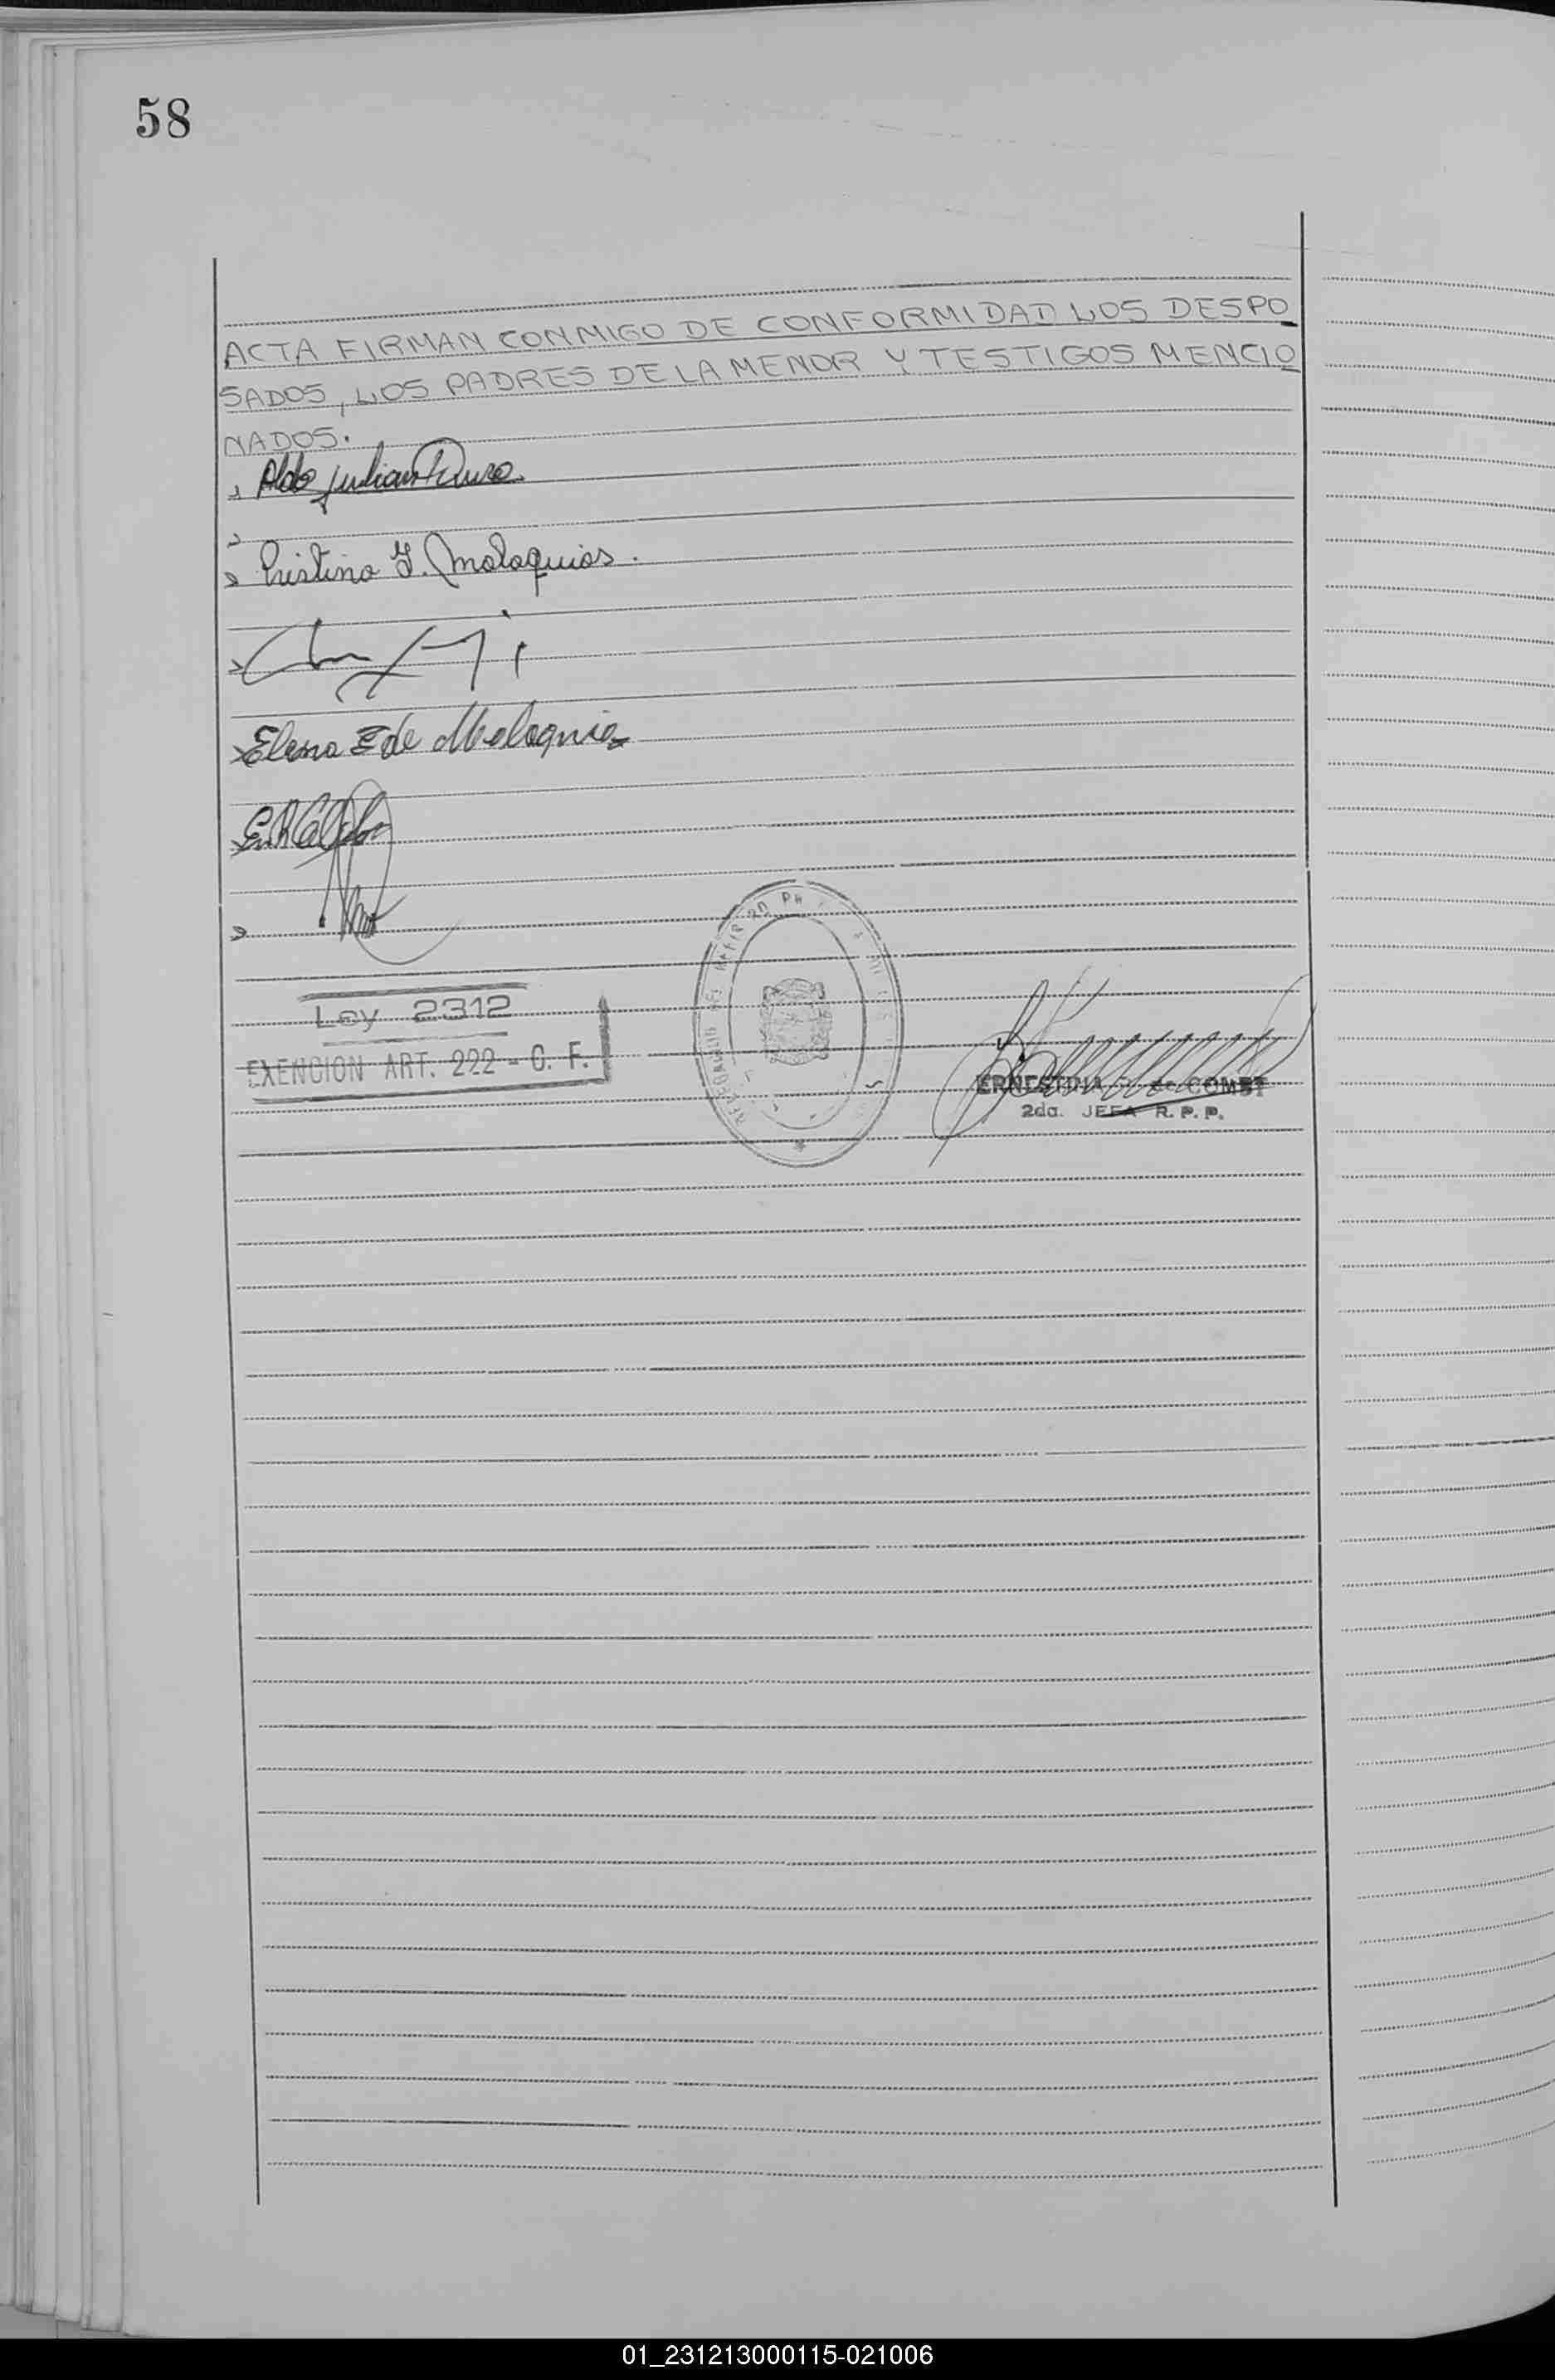 58
ACTA FIRMAN CONMIGO DE CONFORMIDAD LOS DESPO
SADOS, LOS PADRES DE LA MENOR Y TESTIGOS MENCIO
NADOS.
Aldo Julian
Cristina Y. Malaquias.
Elena E de Malaquias
Ley 2312
EXENCION ART. 222 - C. F.
ERNESTINA de
2da. JEFA R. P. P.
01_231213000115-021006